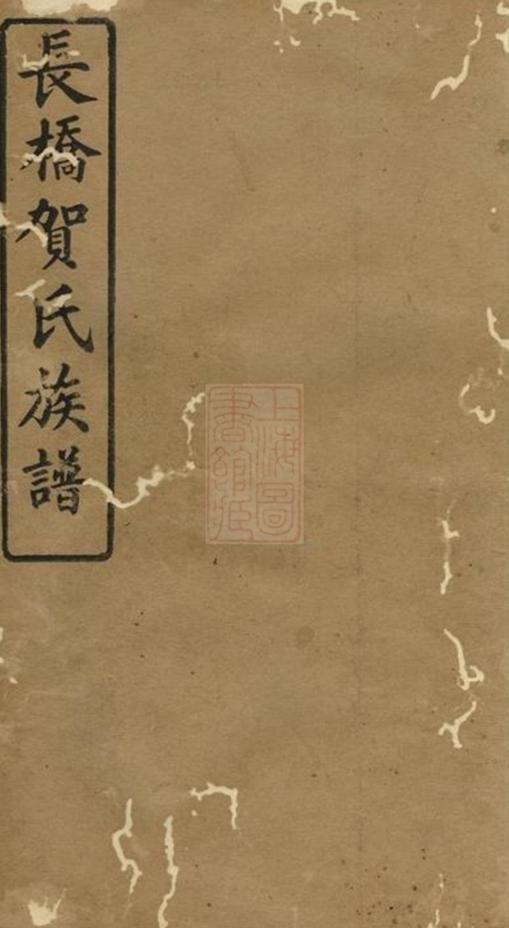 長橋賀氏族譜
上海圖
書館藏